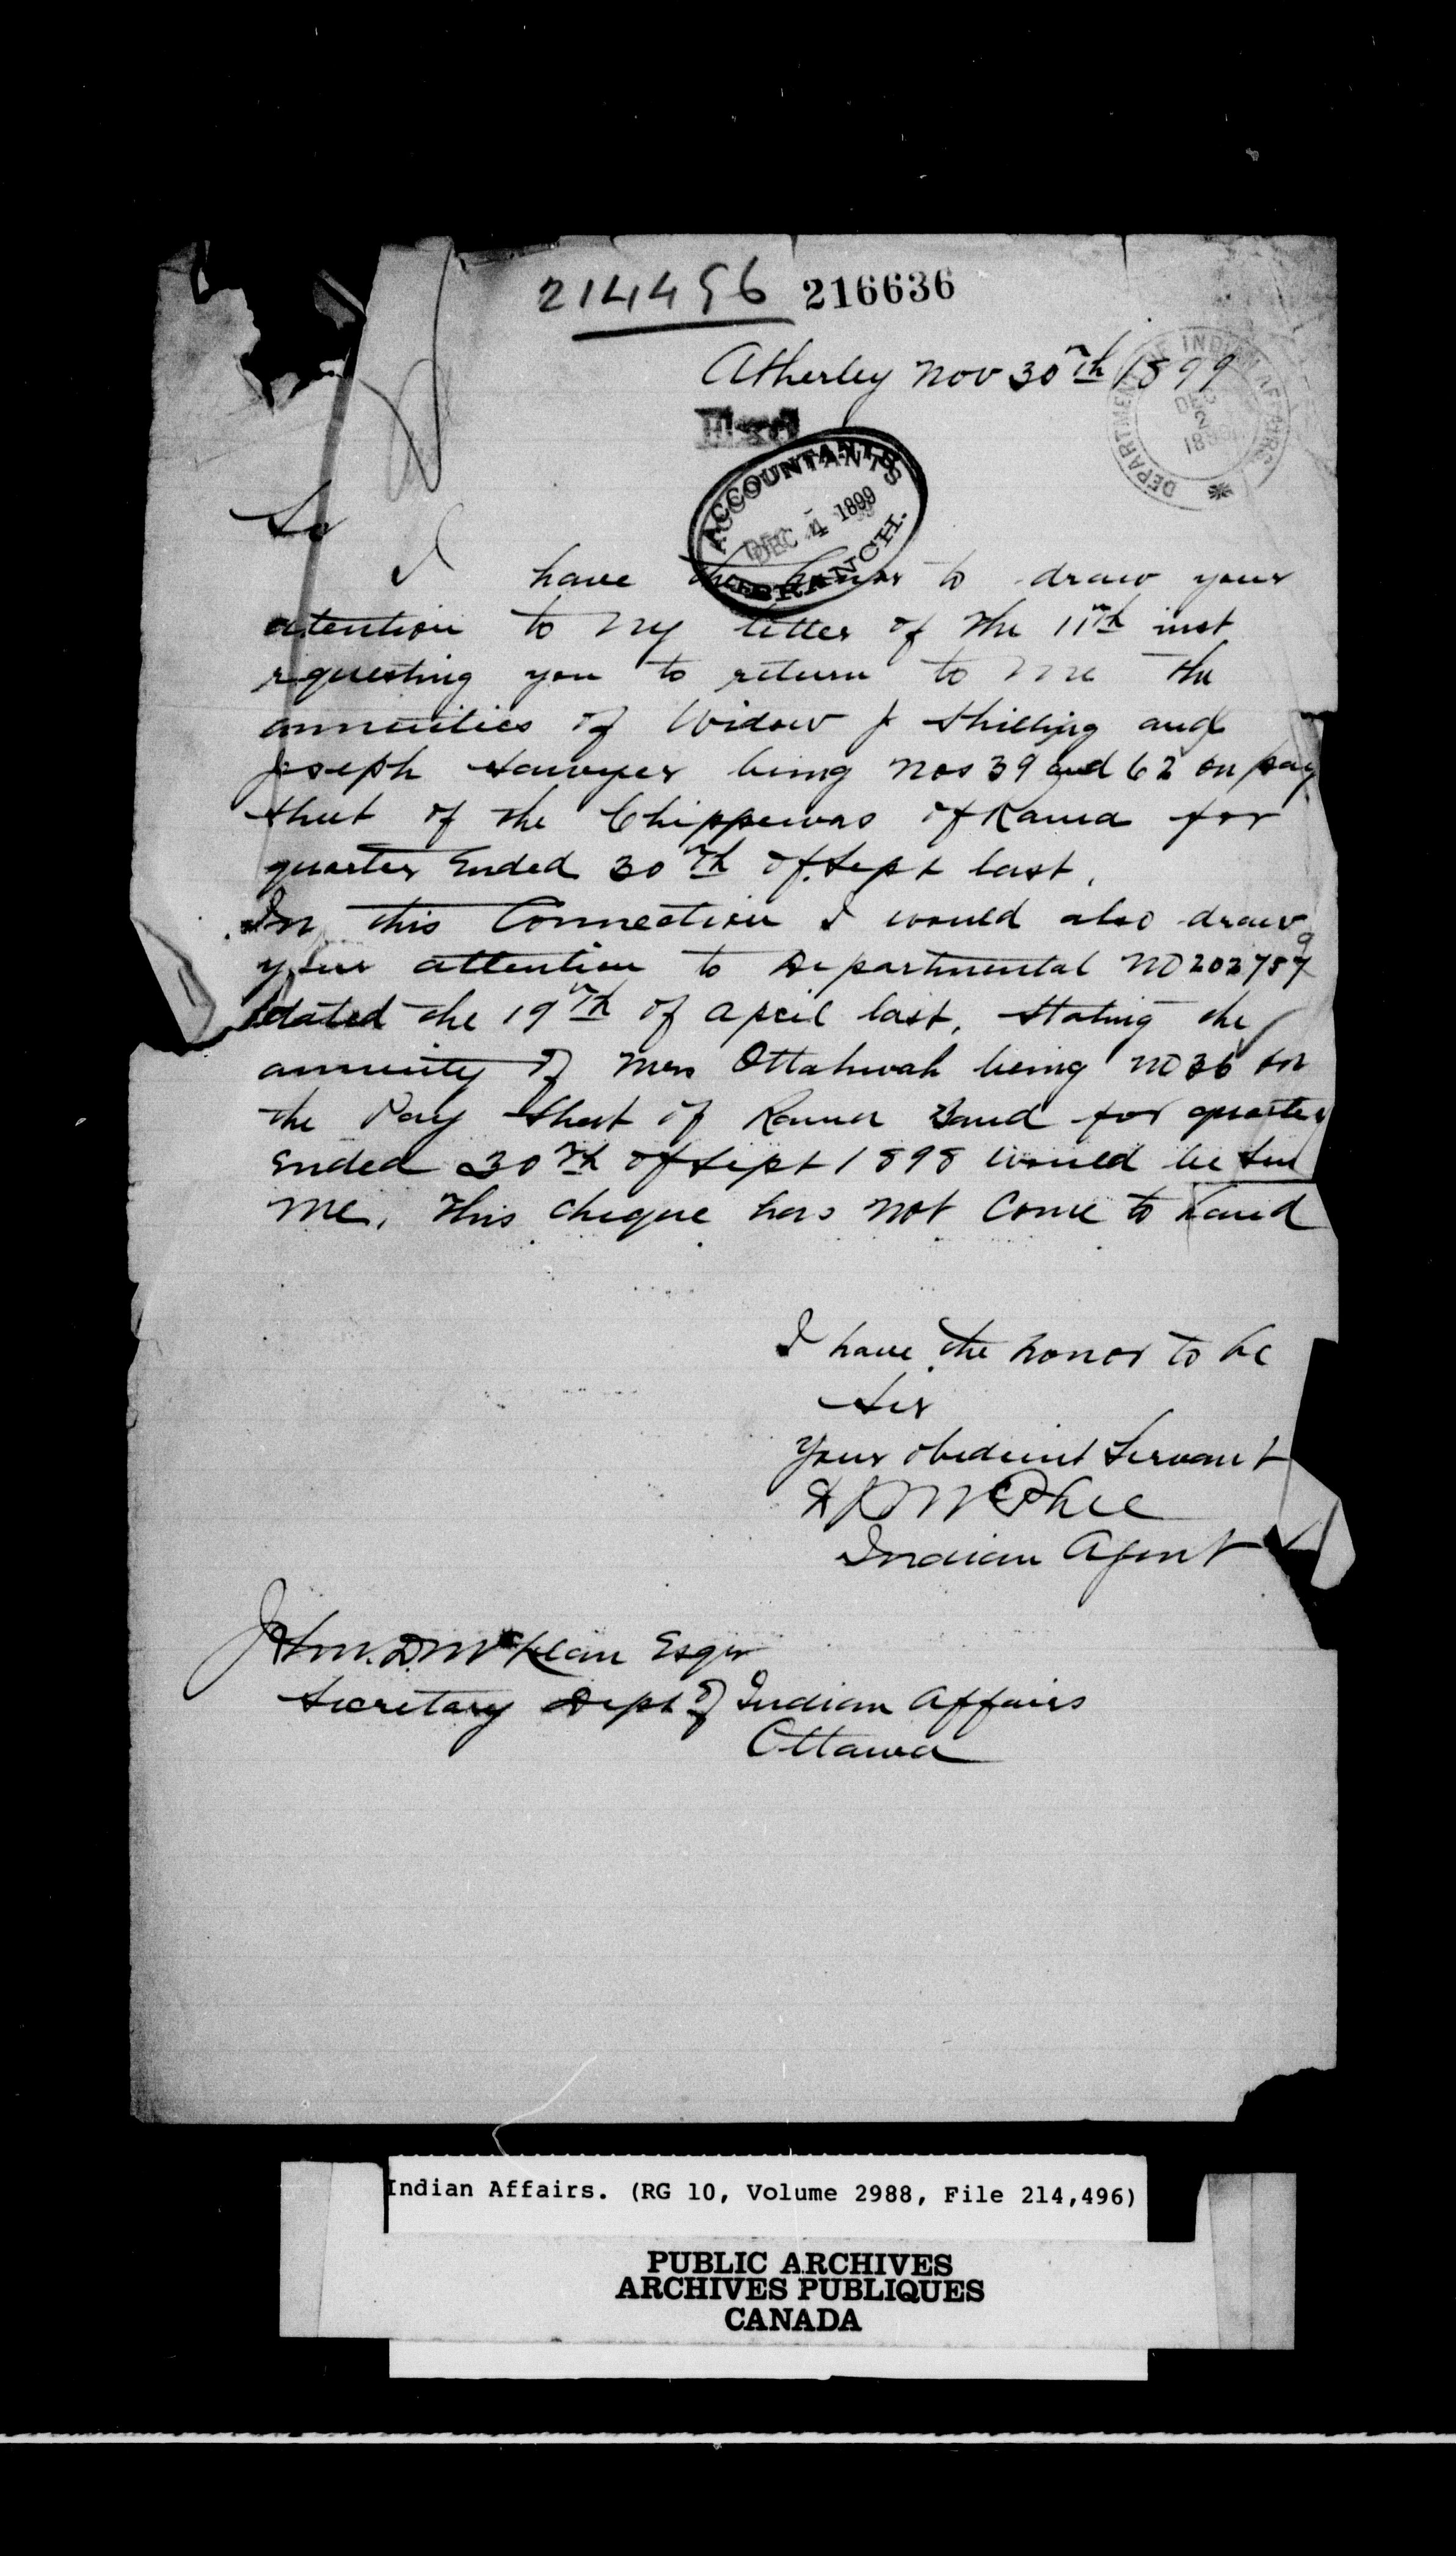 214496 216636
Atherley Nov 30th 1899
DEPARTMENT OF INDIAN AFFAIRS
DEC 2 1899
ACCOUNTANT'S
DEC 4 1899
BRANCH.
Sir
I have the honor to draw your
attention to my letter of the 11th inst
requesting you to return to me the
annuities of Widow J Shilling and
Joseph Sawyer being Nos 39 and 62 on pay
sheet of the Chippewas of Rama for
quarter Ended 30th of Sept last.
In this Connection I would also draw
your attention to Departmental No
dated the 19th of April last, stating the
annuity of Mrs Ottahwah being No 36 on
the Pay Sheet of Rama Band for quarter
Ended 30th of Sept 1898 would be
me. This cheque has not Come to hand
I have the honor to be
Sir
Your obedient Servant
D J McPhee
Indian Agent
John. D. McLean Esqr
Secretary Dept of Indian Affairs
Ottawa
Indian Affairs. (RG 10, Volume 2988, File 214,496)
PUBLIC ARCHIVES
ARCHIVES PUBLIQUES
CANADA